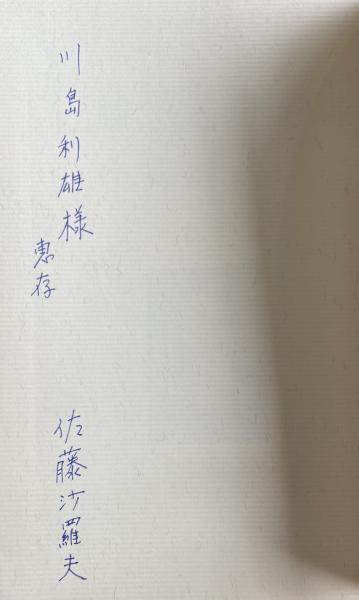 川島利雄様
恵存
佐藤沙羅夫